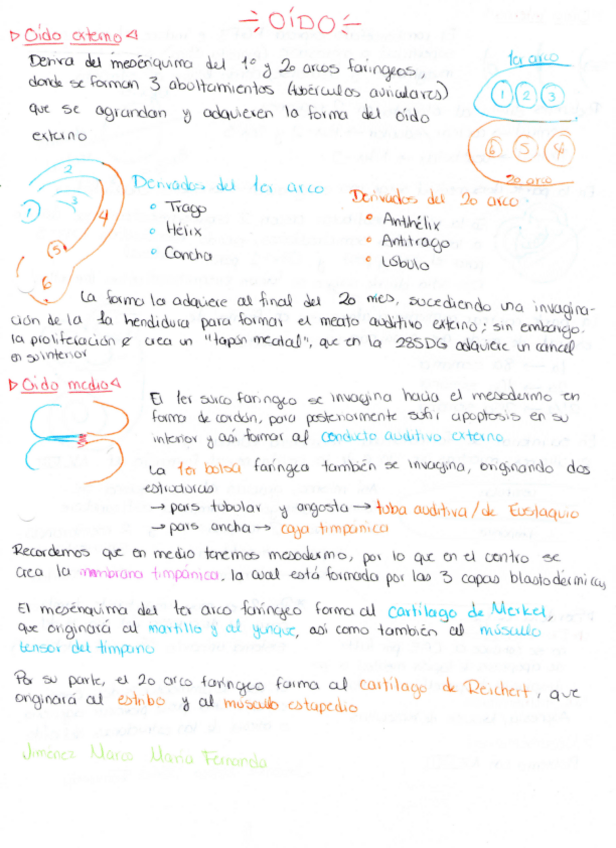 OÍDO
Oído externo
Deriva del mesénquima del 1º y 2o arcos faríngeos,
donde se forman 3 abultamientos (tubérculos auriculares)
que se agrandan y adquieren la forma del oído
externo
1er arco
1 2 3
6 5 4
2o arco
1 2 3 4 5 6
Derivados del 1er arco
• Trago
• Hélix
• Concha
Derivados del 2o arco
• Antihélix
• Antitrago
• Lóbulo
La forma la adquiere al final del 2o mes, sucediendo una invagina-
ción de la 1a hendidura para formar el meato auditivo externo; sin embargo,
la proliferación crea un "tapón meatal", que en la 28SDG adquiere un cancel
en su interior
Oído medio
El 1er surco faríngeo se invagina hacia el mesodermo en
forma de cordón, para posteriormente sufrir apoptosis en su
interior y así formar al conducto auditivo externo
La 1er bolsa faríngea también se invagina, originando dos
estructuras
→ pars tubular y angosta → tuba auditiva/de Eustaquio
→ pars ancha → caja timpánica
Recordemos que en medio tenemos mesodermo, por lo que en el centro se
crea la membrana timpánica, la cual está formada por las 3 capas blastodérmicas
El mesénquima del 1er arco faríngeo forma al cartílago de Merkel,
que originará al martillo y al yunque, así como también al músculo
tensor del tímpano
Por su parte, el 2o arco faríngeo forma al cartílago de Reichert, que
originará al estribo y al músculo estapedio
Jiménez Marco María Fernanda